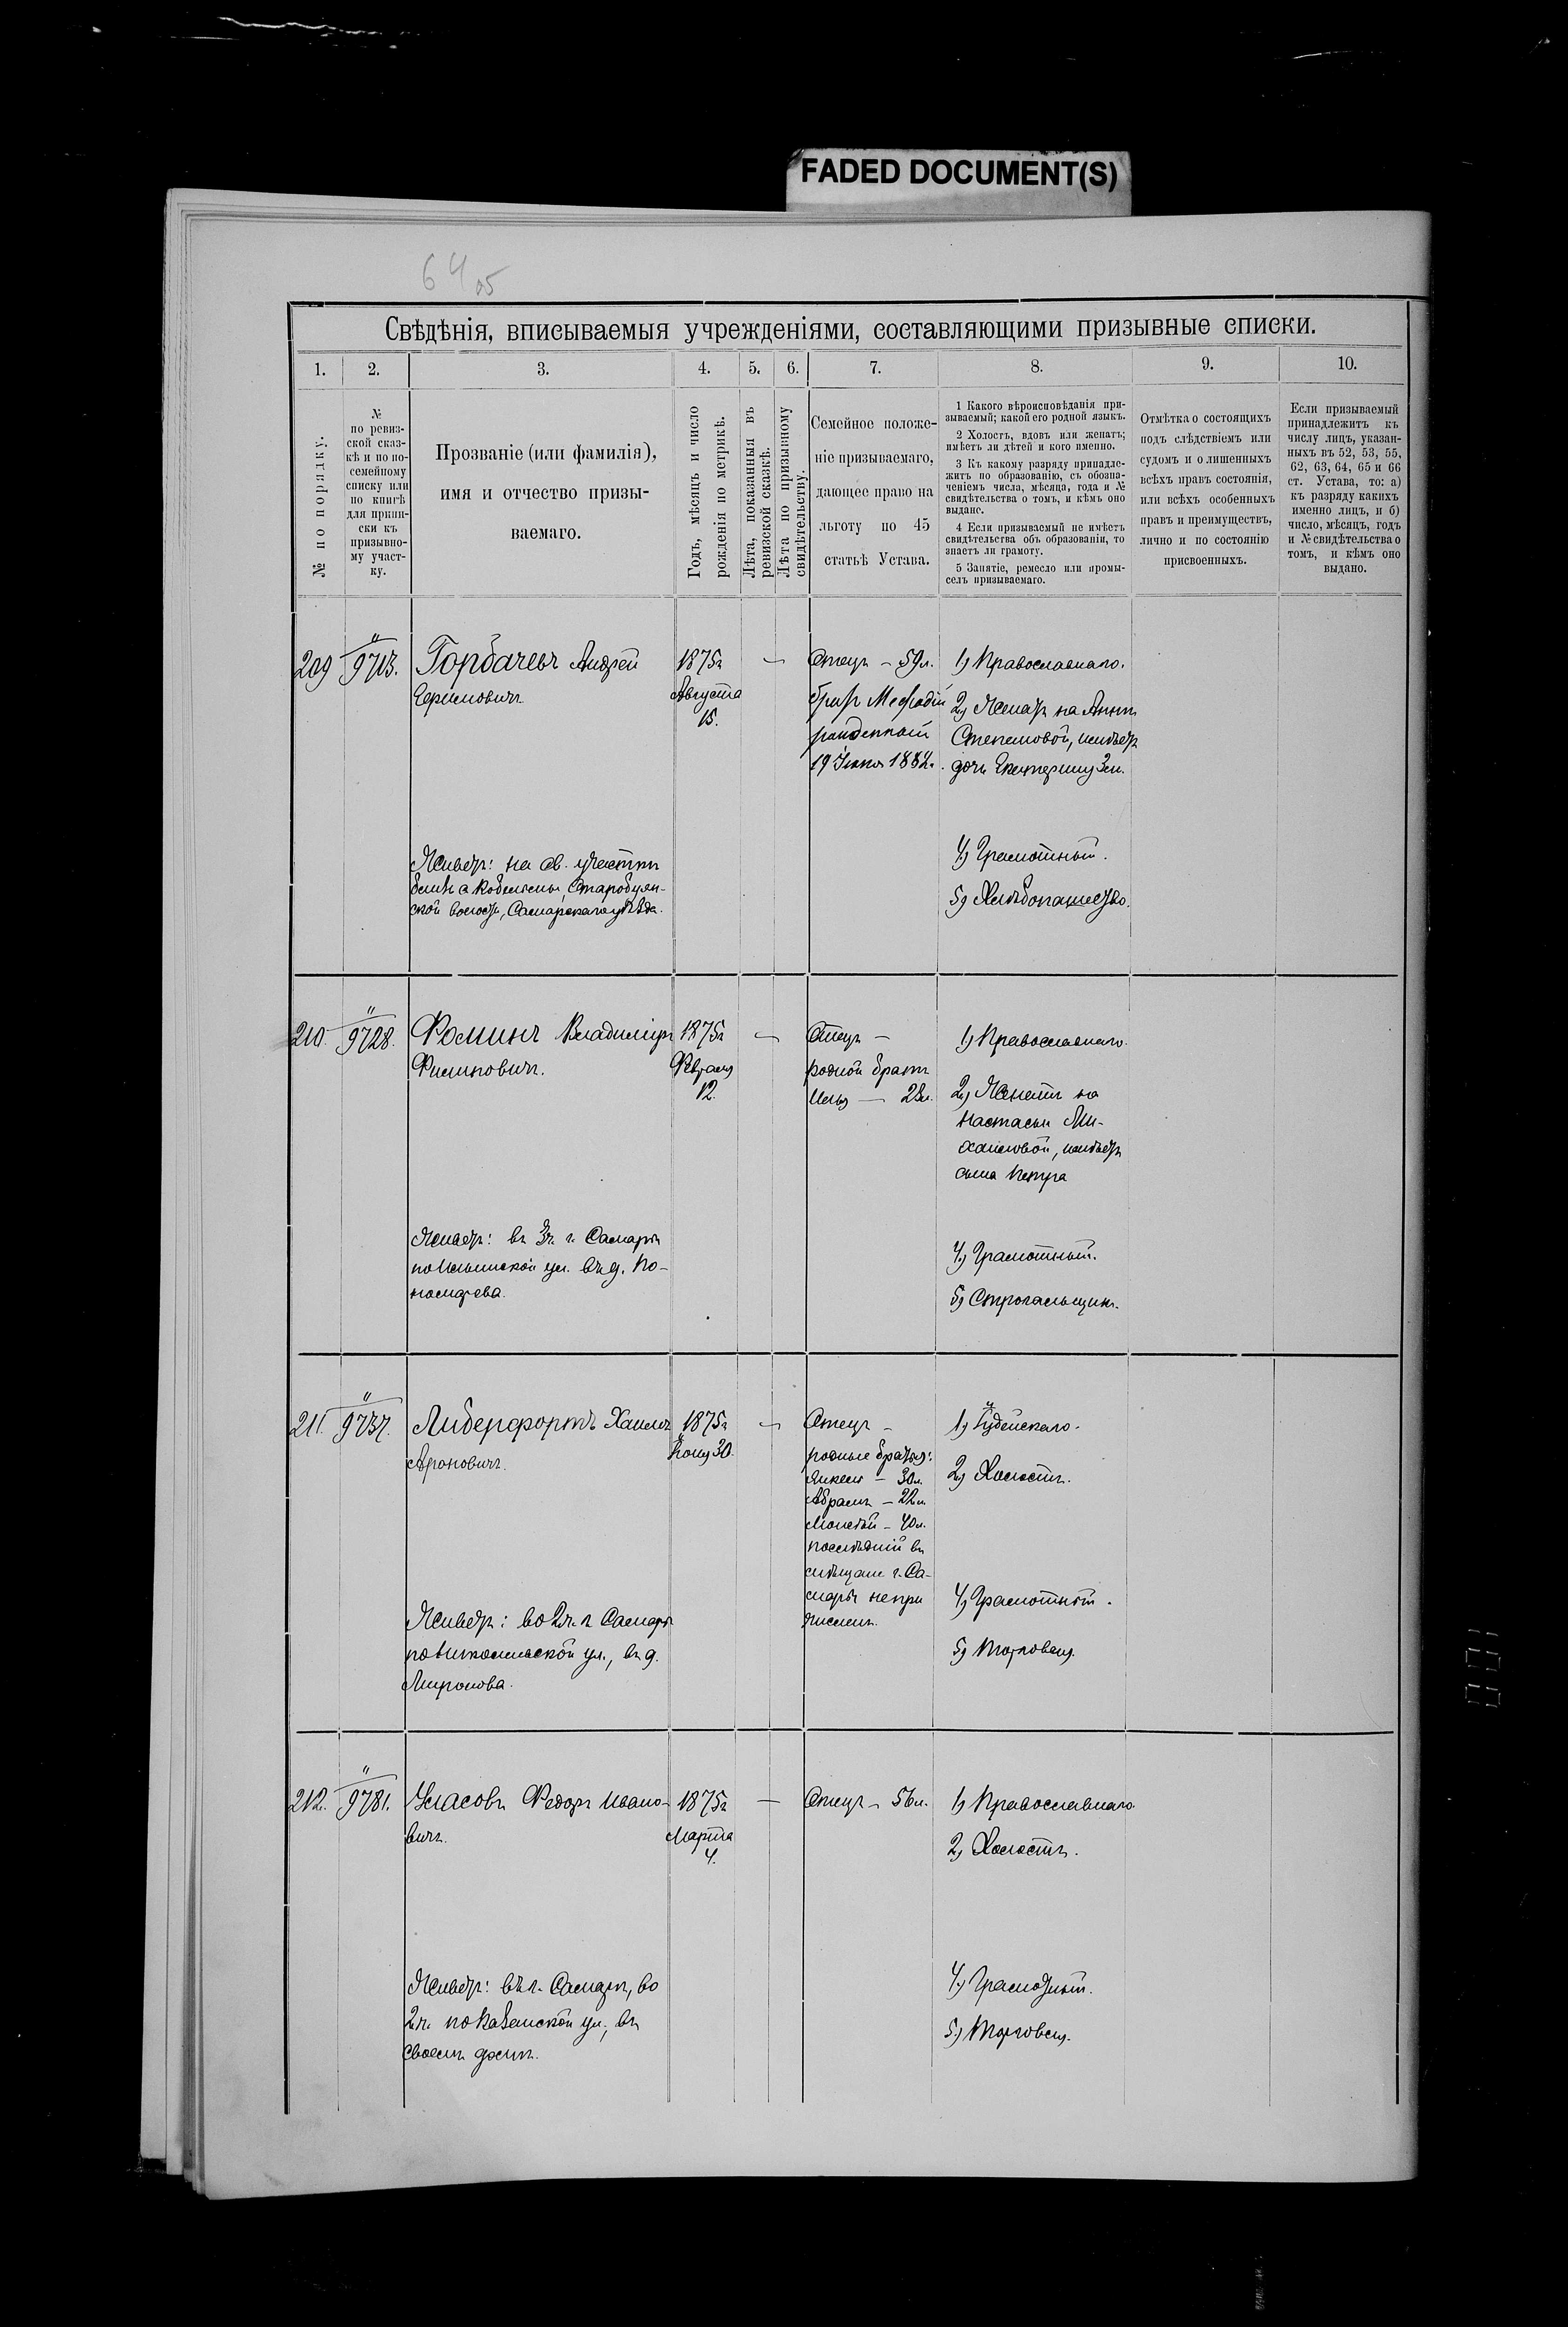 FADED DOCUMENT(S)
64 об
Свѣдѣнія, вписываемыя учрежденіями, составляющими призывные списки.
1.
2.
3.
4.
5.
6.
7.
8.
9.
10.
№ по порядку.
№
по ревиз-
ской сказ-
кѣ и по по-
семейному
списку или
по книгѣ
для припи-
ски къ
призывно-
му участ-
ку.
Прозваніе (или фамилія),
имя и отчество призы-
ваемаго.
Годъ, мѣсяцъ и число
рожденія по метрикѣ.
Лѣта, показанныя въ
ревизской сказкѣ.
Лѣта по призывному
свидѣтельству.
Семейное положе-
ніе призываемаго,
дающее право на
льготу по 45
статьѣ Устава.
1 Какого вѣроисповѣданія при-
зываемый; какой его родной языкъ.
2 Холостъ, вдовъ или женатъ;
имѣетъ ли дѣтей и кого именно.
3 Къ какому разряду принадле-
житъ по образованію, съ обозна-
ченіемъ числа, мѣсяца, года и №
свидѣтельства о томъ, и кѣмъ оно
выдано.
4 Если призываемый не имѣетъ
свидѣтельства объ образованіи, то
знаетъ ли грамоту.
5 Занятіе, ремесло или промы-
селъ призываемаго.
Отмѣтка о состоящихъ
подъ слѣдствіемъ или
судомъ и о лишенныхъ
всѣхъ правъ состоянія,
или всѣхъ особенныхъ
правъ и преимуществъ,
лично и по состоянію
присвоенныхъ.
Если призываемый
принадлежитъ къ
числу лицъ, указан-
ныхъ въ 52, 53, 55,
62, 63, 64, 65 и 66
ст. Устава, то: а)
къ разряду какихъ
именно лицъ, и б)
число, мѣсяцъ, годъ
и № свидѣтельства о
томъ, и кѣмъ оно
выдано.
209
9713.
Горбачевъ Андрей
Ефимовичъ.
1875г
Августа
15.
—
Отецъ – 59л.
братъ Мефодій
рожденный
19 Іюня 1882г.
1) Православнаго.
2) Женатъ на Аннѣ
Степановой, имѣетъ
дочь Екатерину 2м.
4) Грамотный.
5) Хлѣбопашество.
Живетъ: на св. участкѣ
близь с Кобельмы, Старобуян-
ской волости, Самарскаго уѣзда.
210.
9728.
Фоминъ Владиміръ
Филиповичъ.
1875г
Февраля
12.
—
Отецъ –
родной братъ
Илья — 28л.
1) Православнаго.
2) Женатъ на
Настасьи Ми-
хайловой, имѣетъ
сына Петра
4) Грамотный.
5) Строгальщикъ.
Живетъ: въ 3ч. г. Самары
по Ильинской ул. въ д. По-
номарева.
211.
9737.
Либерфортъ Хаимъ
Ароновичъ.
1875г
Іюня 30.
—
Отецъ –
родные братья:
Янкель – 30л.
Абрамъ – 22л.
Моисей – 40л.
послѣдній въ
мѣщане г. Са-
мары непри
численъ.
1) Іудейскаго.
2) Холостъ.
4) Грамотный.
5) Торговля.
Живетъ: во 2ч. г Самары
по Никольской ул., въ д.
Миронова.
212.
9781.
Власовъ Федоръ Ивано-
вичъ.
1875г
Марта
4.
—
Отецъ – 56л.
1) Православнаго
2) Холостъ.
4) Грамотный.
5) Торговля.
Живетъ: въ г. Самарѣ, во
2ч. по Казанской ул., въ
своемъ домѣ.